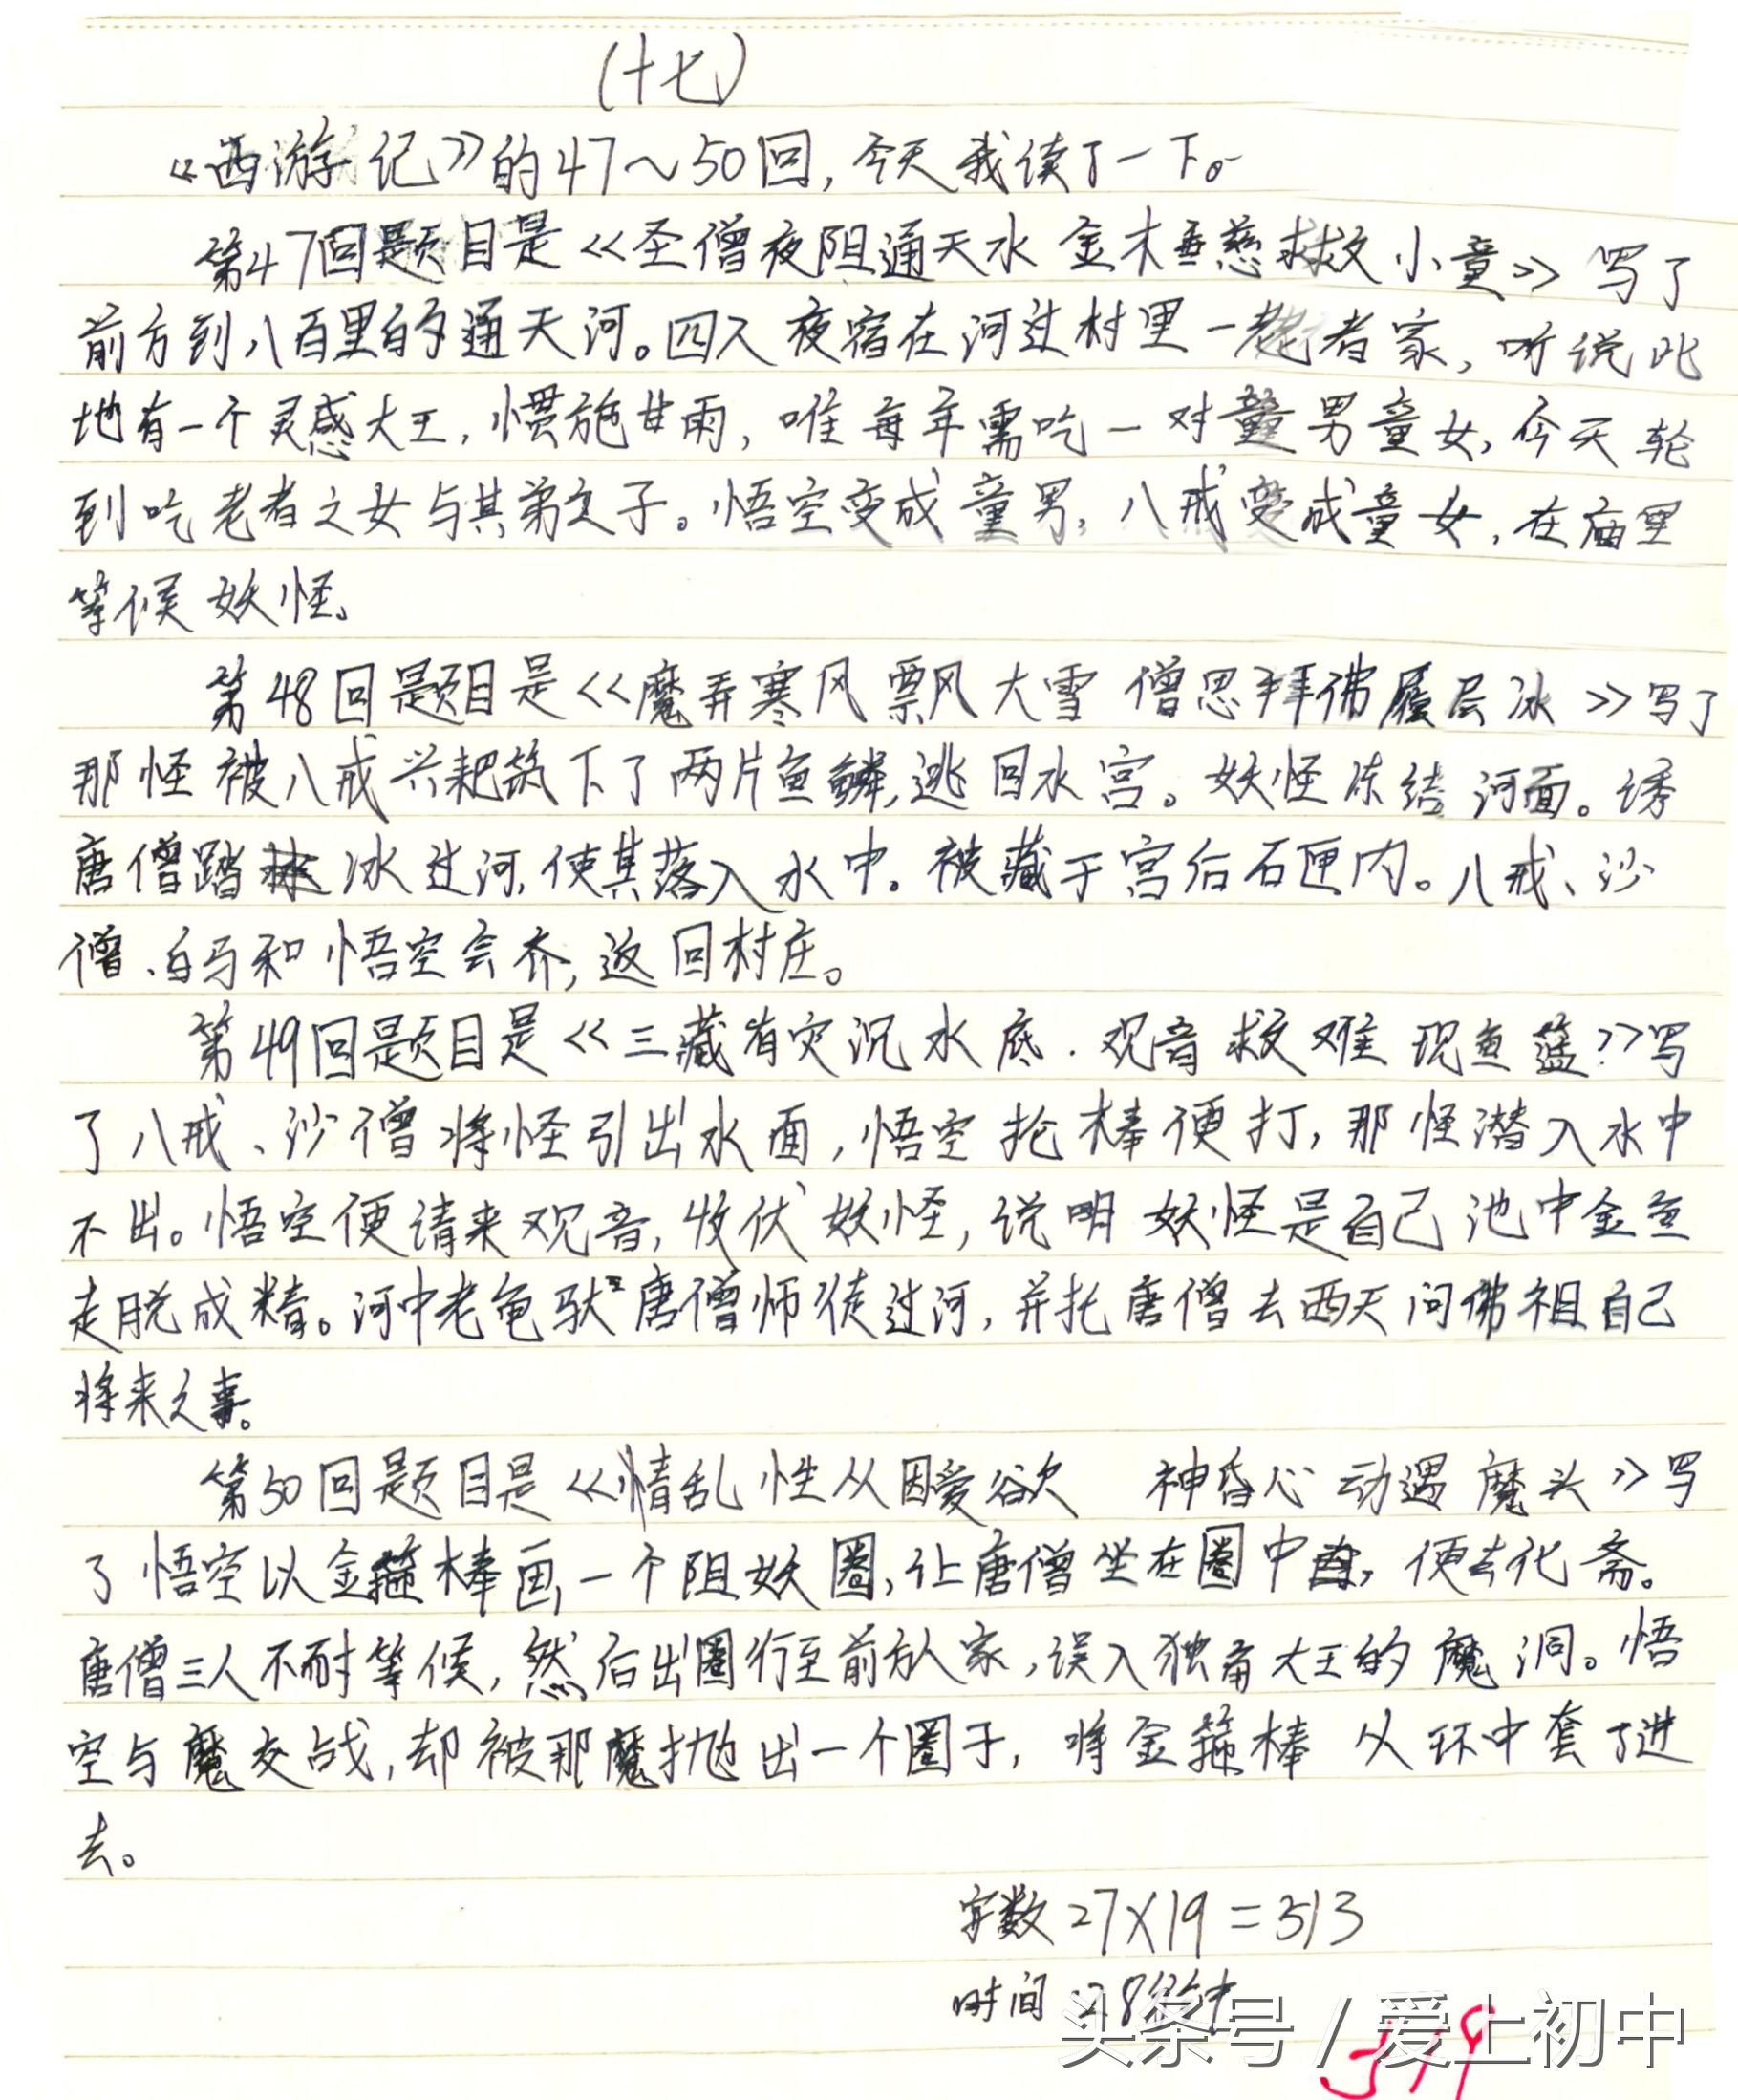 (十七)
《西游记》的47～50回,今天我读了一下。
第47回题目是《圣僧夜阻通天水 金木垂慈救小童》写了
前方到八百里的通天河。四人夜宿在河边村里一老者家,听说此
地有一个灵感大王,惯施甘雨,唯每年需吃一对童男童女,今天轮
到吃老者之女与其弟之子。悟空变成童男,八戒变成童女,在庙里
等候妖怪。
第48回题目是《魔弄寒风飘大雪 僧思拜佛履层冰》写了
那怪被八戒兴耙筑下了两片鱼鳞,逃回水宫。妖怪冻结河面。诱
唐僧踏冰过河,使其落入水中。被藏于宫后石匣内。八戒、沙
僧、白马和悟空会齐,返回村庄。
第49回题目是《三藏有灾沉水底.观音救难现鱼篮》写
了八戒、沙僧将怪引出水面,悟空抡棒便打,那怪潜入水中
不出。悟空便请来观音,收伏妖怪,说明妖怪是自己池中金鱼
走脱成精。河中老龟驮唐僧师徒过河,并托唐僧去西天问佛祖自己
将来之事。
第50回题目是《情乱性从因爱欲 神昏心动遇魔头》写
了悟空以金箍棒画一个阻妖圈,让唐僧坐在圈中,便去化斋。
唐僧三人不耐等候,然后出圈行至前方人家,误入独角大王的魔洞。悟
空与魔交战,却被那魔抛出一个圈子,将金箍棒从环中套了进
去。
字数27×19=513
时间:28分钟
头条号/爱上初中